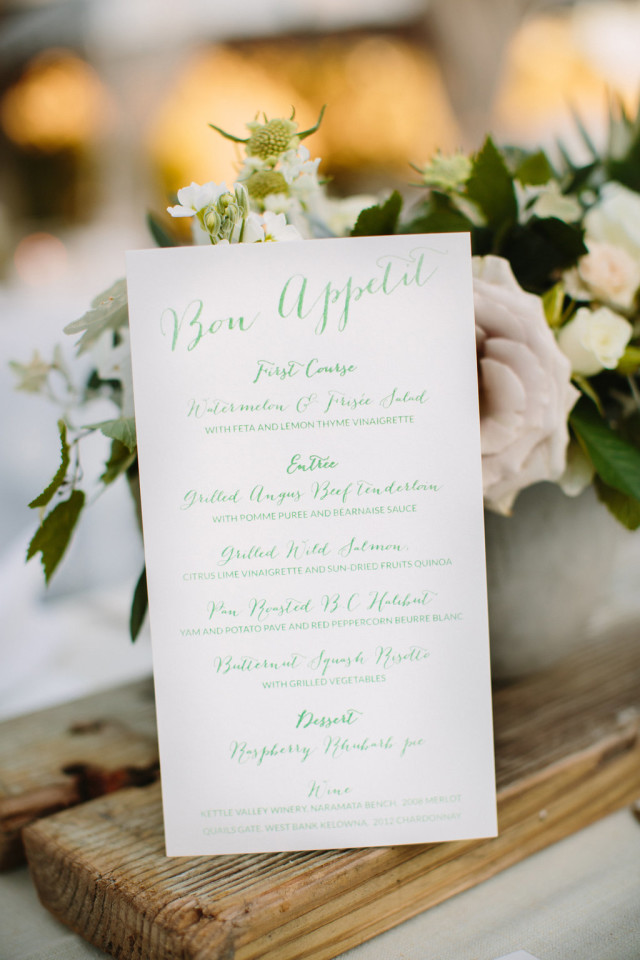 Bon Appetit
First Course
Watermelon & Frisée Salad
WITH FETA AND LEMON THYME VINAIGRETTE
Entrée
Grilled Angus Beef Tenderloin
WITH POMME PUREE AND BEARNAISE SAUCE
Grilled Wild Salmon,
CITRUS LIME VINAIGRETTE AND SUN-DRIED FRUITS QUINOA
Pan Roasted B.C Halibut
YAM AND POTATO PAVE AND RED PEPPERCORN BEURRE BLANC
Butternut Squash Risotto
WITH GRILLED VEGETABLES
Dessert
Raspberry Rhubarb pie
Wine
KETTLE VALLEY WINERY, NARAMATA BENCH, 2008 MERLOT
QUAILS GATE, WEST BANK KELOWNA, 2012 CHARDONNAY